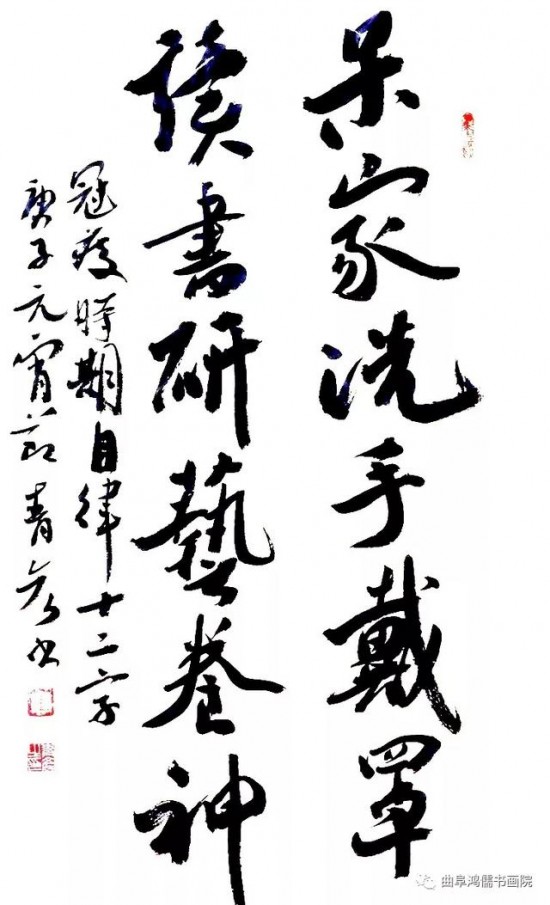 呆家洗手戴罩
讀書研藝養神
冠疫時期自律十二字
庚子元宵節青彦书
曲阜鸿儒书画院